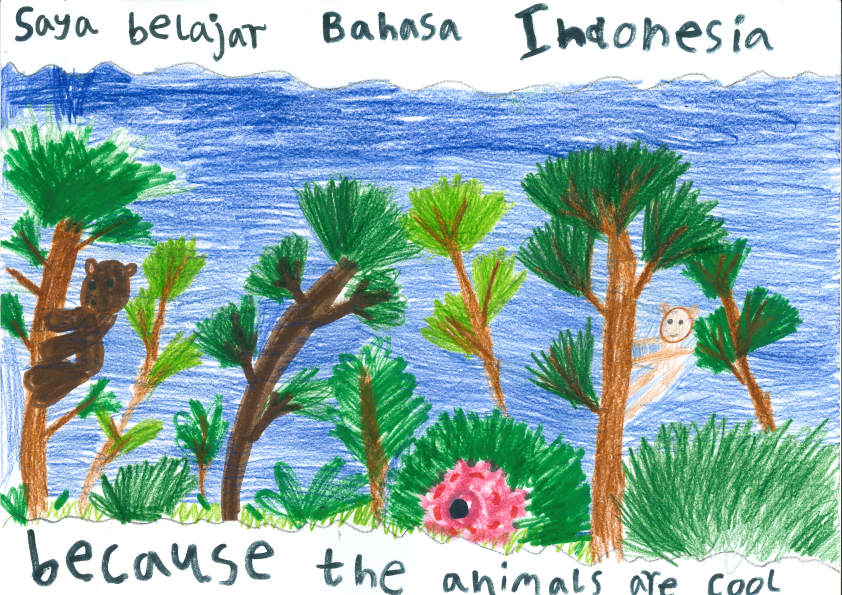 Saya belajar Bahasa Indonesia
because the animals are cool